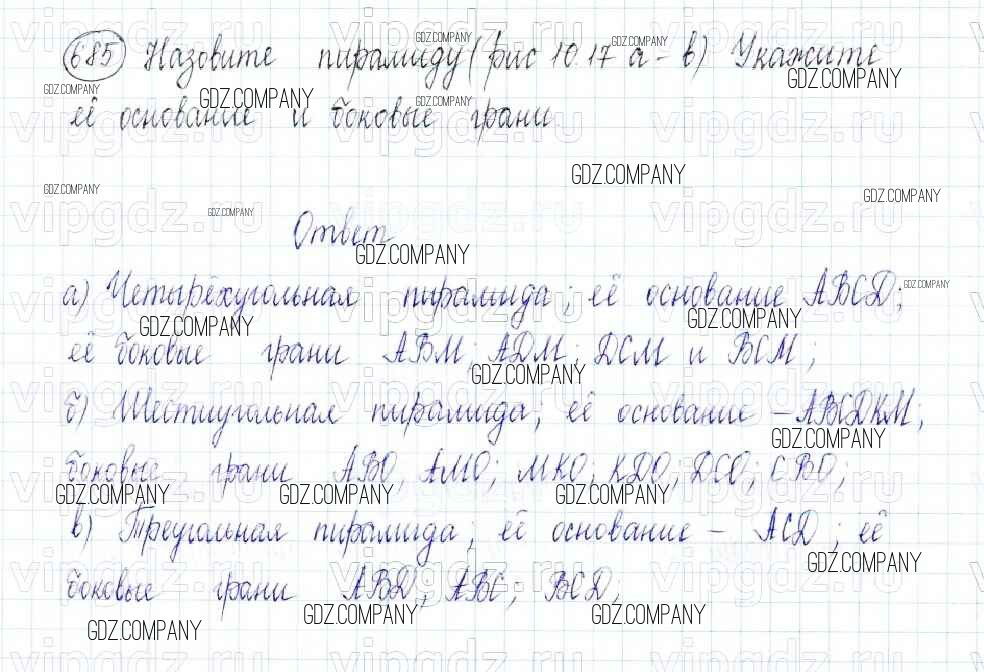 685 Назовите пирамиду (рис 10.17 а - в) Укажите
её основание и боковые грани
Ответ
а) Четырёхугольная пирамида; её основание ABCD;
её боковые грани ABM; ADM; DCM и BCM;
б) Шестиугольная пирамида; её основание - ABCDKM;
боковые грани ABO, AMO; MKO; KDO; DCO; CBO;
в) Треугольная пирамида; её основание - ACD; её
боковые грани ABD; ABC; BCD,
GDZ.COMPANY
vipgdz.ru